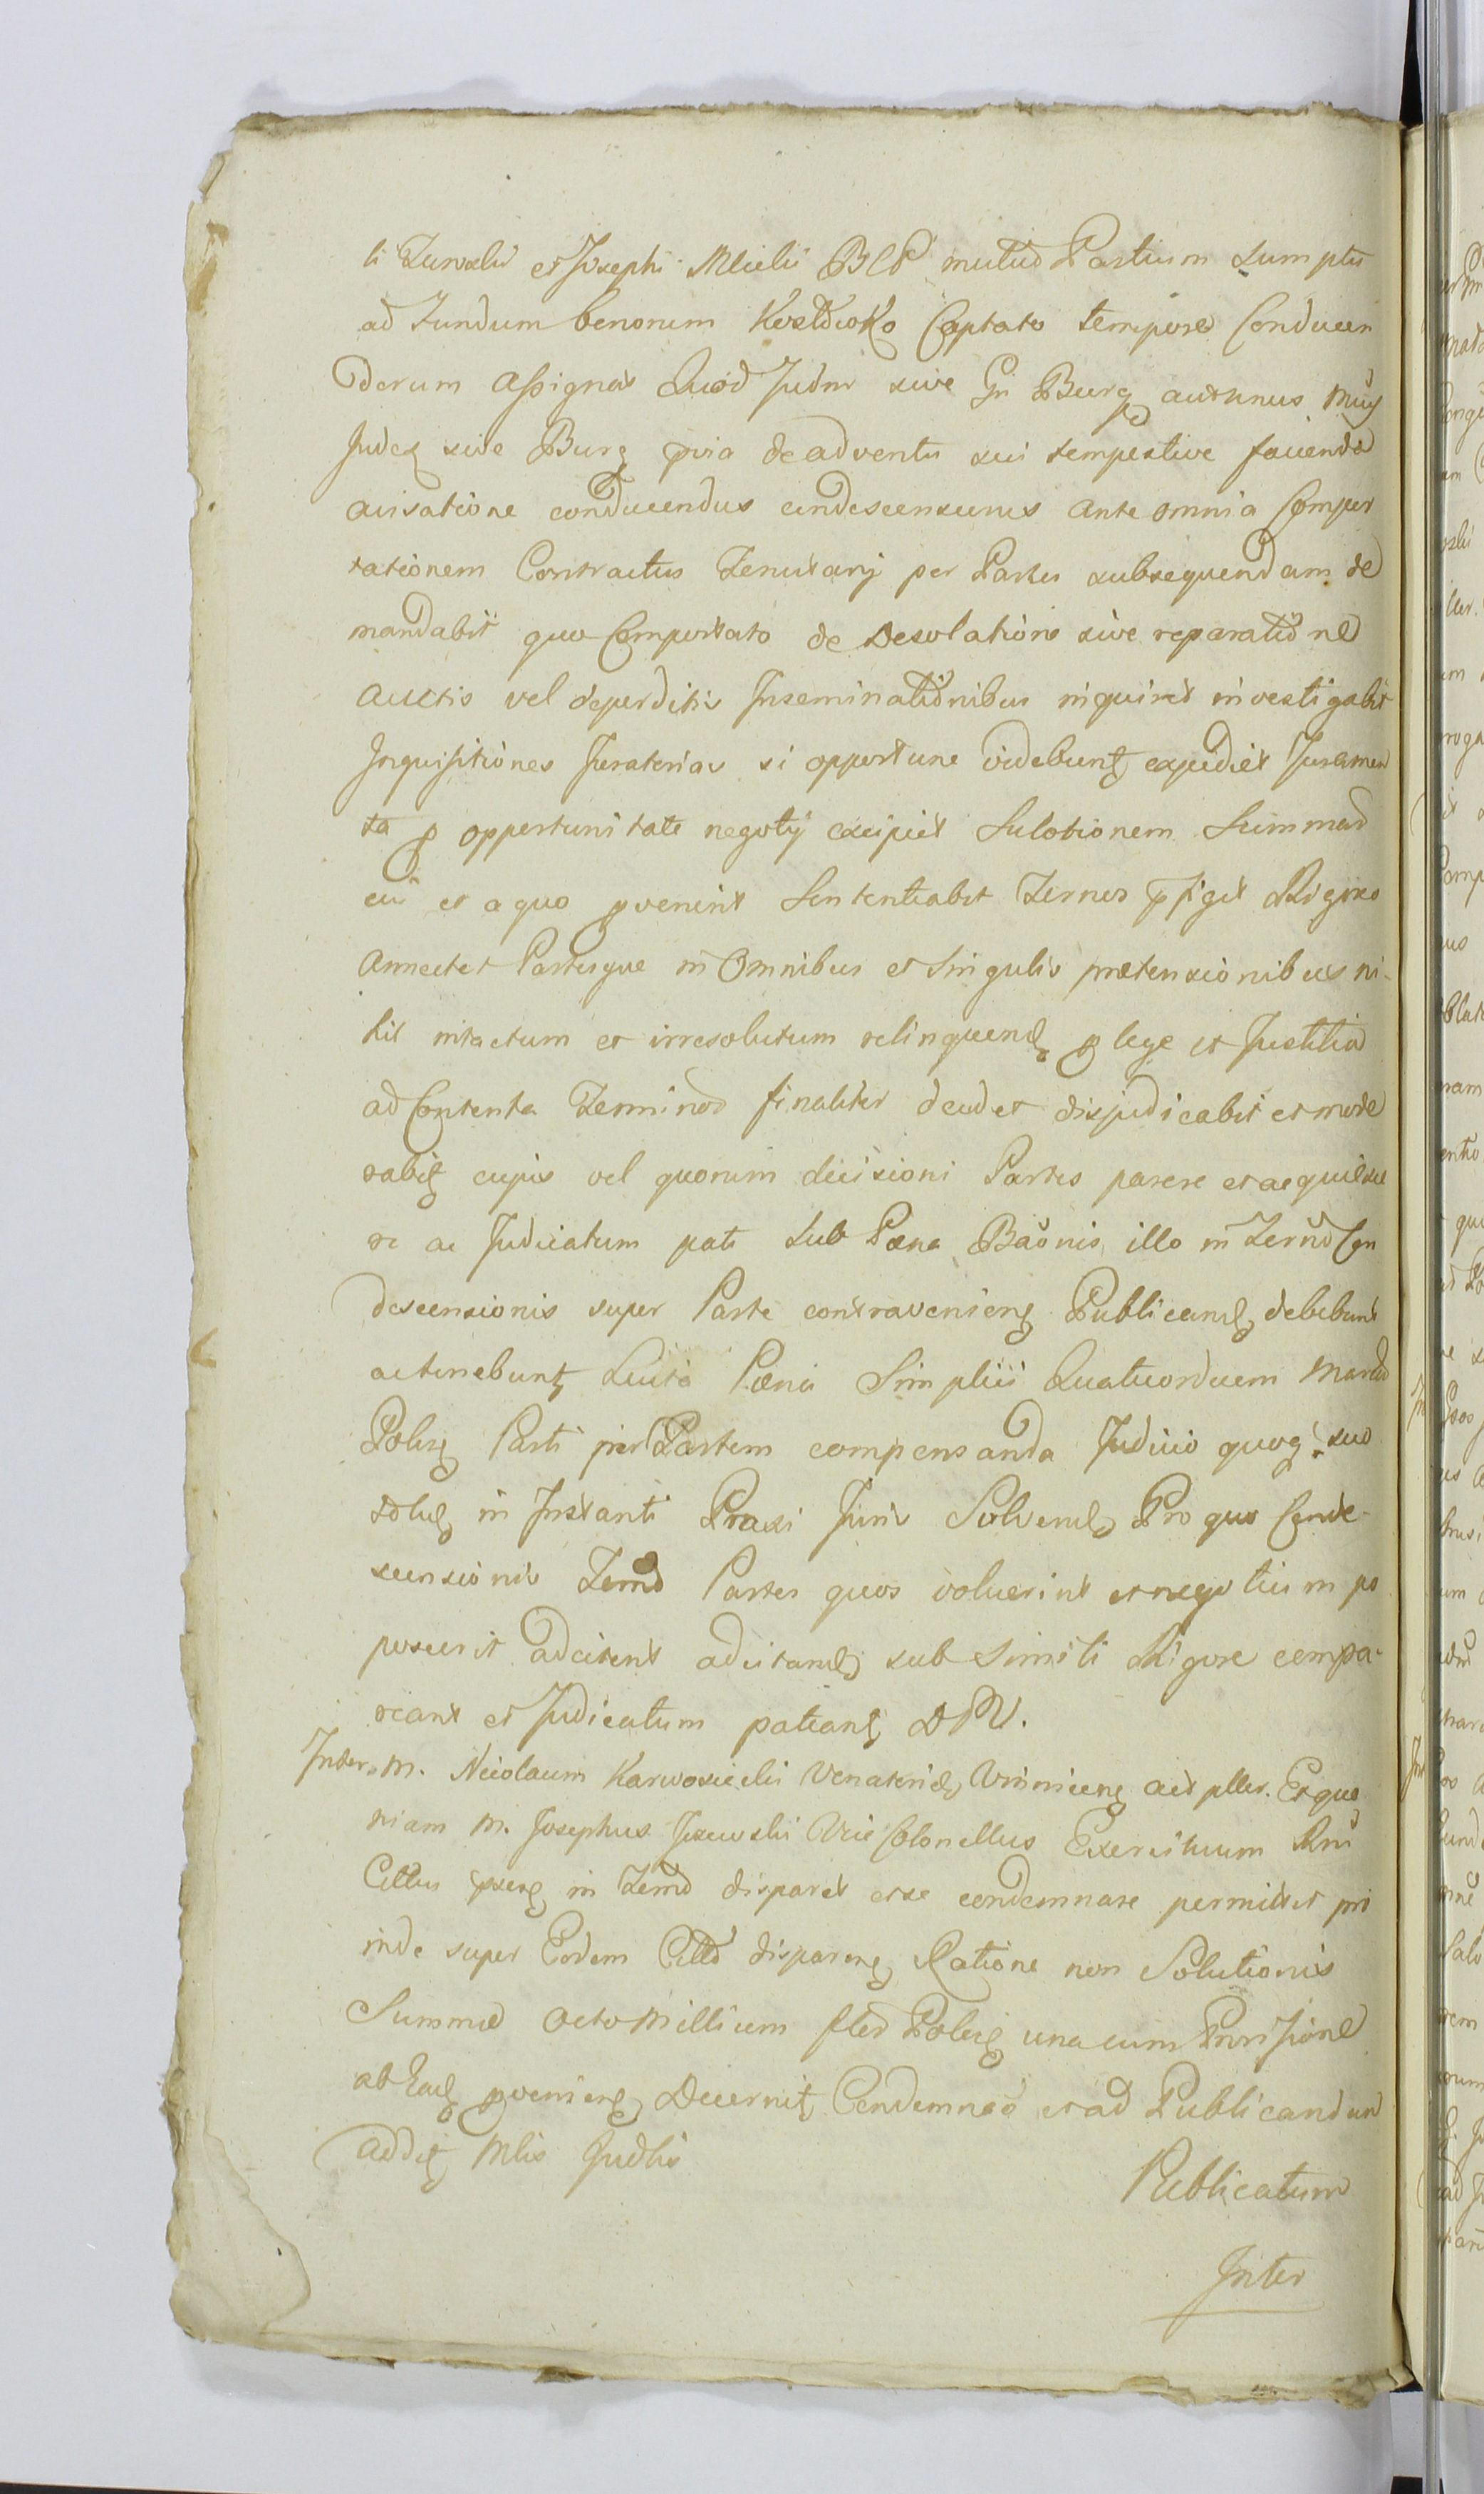 li Zurowski et Josephi Mlicki BCP mutuo Partium sumptu
ad Fundum bonorum Captato tempore Conducen
dorum assignat Quod Judm sive Gr Burg aut unus
Judex sive Burg pvia de adventu sui tempestive facienda
avisatione conducendus condescensurus ante omnia Compor
tationem Contractus Tenutarij per Partes subsequendam de
mandabit quo Comportato de Desolatione sive reparatione
auctis vel deperditis Inseminationibus inquiret investigabit
Inquisitiones Juratorias si opportune videbunt expediet Juramen
ta p opportunitate negotij excipiet Solutionem Summae
cui et a quo pvenerit Sententiabit Ternos pfiget Rigores
annectet Partesque in Omnibus et Singulis praetensionibus ni-
hil intactum et irresolutum relinquend p lege et Justitia
ad Contenta Terminor finaliter decidet disjudicabit et mode
rabit cujus vel quorum decisioni Partes parere et acquiesce
re ac Judicatum pati sub Poena Baonis illo in Terno Con
descensionis super Parte contraveniens Publicand debebunt
ac tenebunt Luita Poena Simplici Quatuordecim Marcar
Polres Parti per Partem compensanda Judicio quoq suo
solus in Instanti Praxi Juris Solvend Pro quo Conde-
scensionis Termo Partes quos voluerint et negotium po
poscerit adcitent adcitand sub simili Rigore compa-
reant et Judicatum patiant
Inter M. Nicolaum Karwosiecki Venatorid Vinnicens act pller. Et quo
niam M. Josephus Jezewski Vice Colonellus Exercituum
Cittus pzens in Termo disparet et se condemnare permittit pro
inde super Eodem Citto disparens Ratione non Solutionis
Summae octo Millium flor Polres una cum Provisione
ab Ead pveniens Decernit Condemnao et ad Publicandum
addit Mlis Judlis
Publicatum
Inter